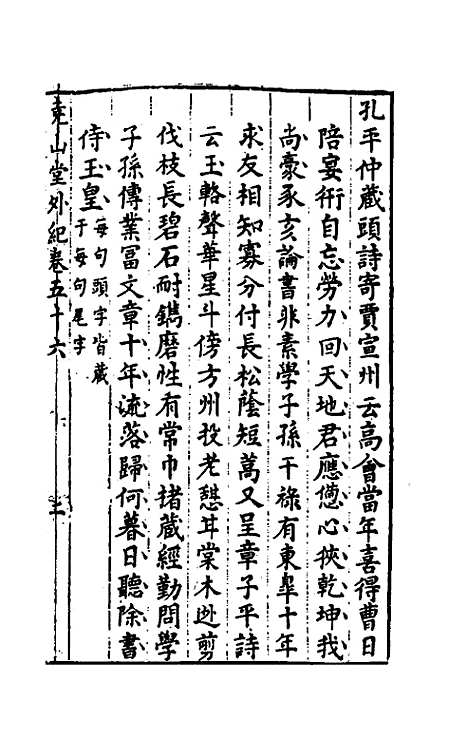 孔平仲藏頭詩寄賈宣州云高會當年喜得曹日
陪宴衎自忘勞力回天地君應憊心狹乾坤我
尚豪豕亥論書非素學子孫干祿有東臯十年
求友相知寡分付長松蔭短萬又呈章子平詩
云玉輅聲華星斗傍方州投老憇甘棠木迯剪
伐枝長碧石耐鐫磨性有常巾褚藏經勤問學
子孫傳業冨文章十年流落歸何暮日聽除書
侍玉皇每句頭字皆藏
于每句尾字
堯山堂外紀卷五十六